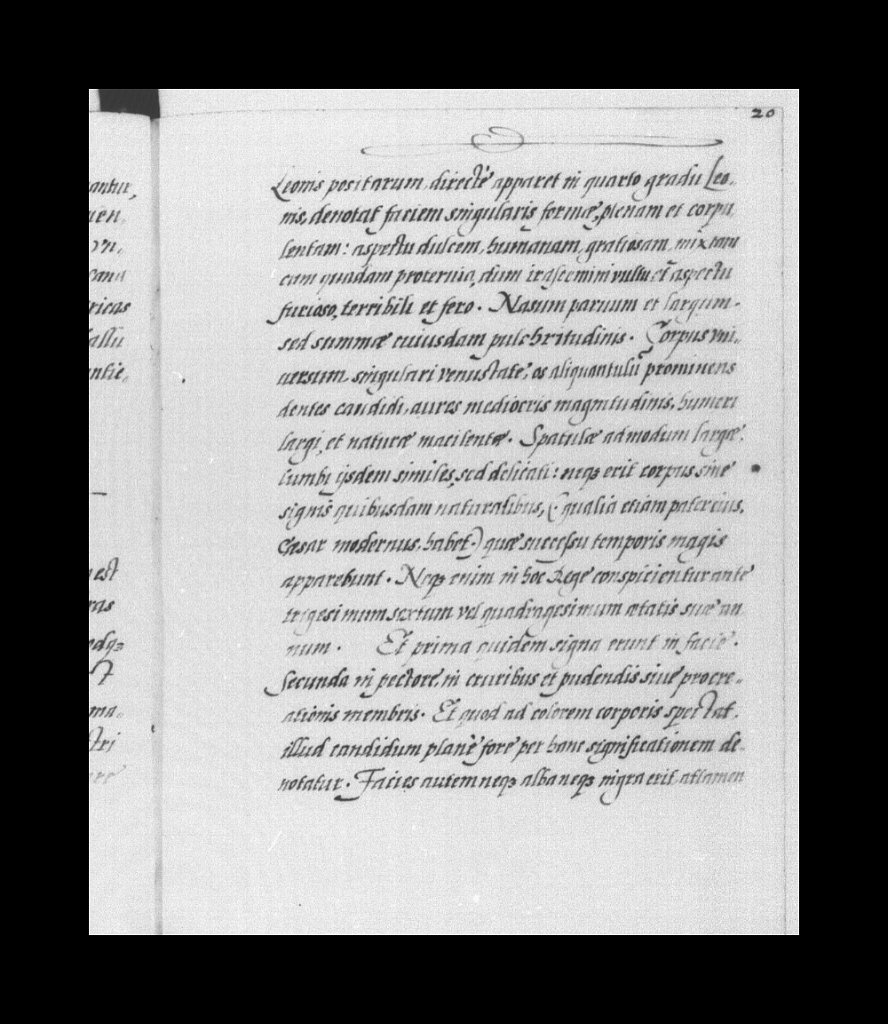 20
antur,
uen.
cana
ricas
allu
antie,
est
ras
edqȝ
ma.
stri
Leonis positarum directè apparet in quarto gradu Leo.
nis, denotat faciem singularis formæ, plenam et corpu
lentam: aspectu dulcem, humanam, gratiosam, mixtam
cum quadam proteruia, dum irascimini vultu et aspectu
furioso, terribili et fero. Nasum paruum et largum.
sed summæ cuiusdam pulchritudinis. Corpus vni..
uersum singulari venustate, os aliquantulū prominens
dentes candidi, aures mediocris magnitudinis, humeri
largi, et naturæ macilentæ. Spatulæ admodum largæ.
lumbi ijsdem similes, sed delicati: neqȝ erit corpus sine
signis quibusdam naturalibus, (qualia etiam pater eius,
Cæsar modernus, habet.) quæ successu temporis magis
apparebunt. Neqȝ enim in hoc Rege conspicientur ante
trigesimum sextum vel quadragesimum ætatis suæ an
num. Et prima quidem signa erunt in facie.
Secunda in pectore, in cruribus et pudendis siue procre..
ationis membris. Et quod ad colorem corporis spectat,
illud candidum planè fore per hanc significationem de..
notatur. Facies autem neqȝ alba neqȝ nigra erit attamen